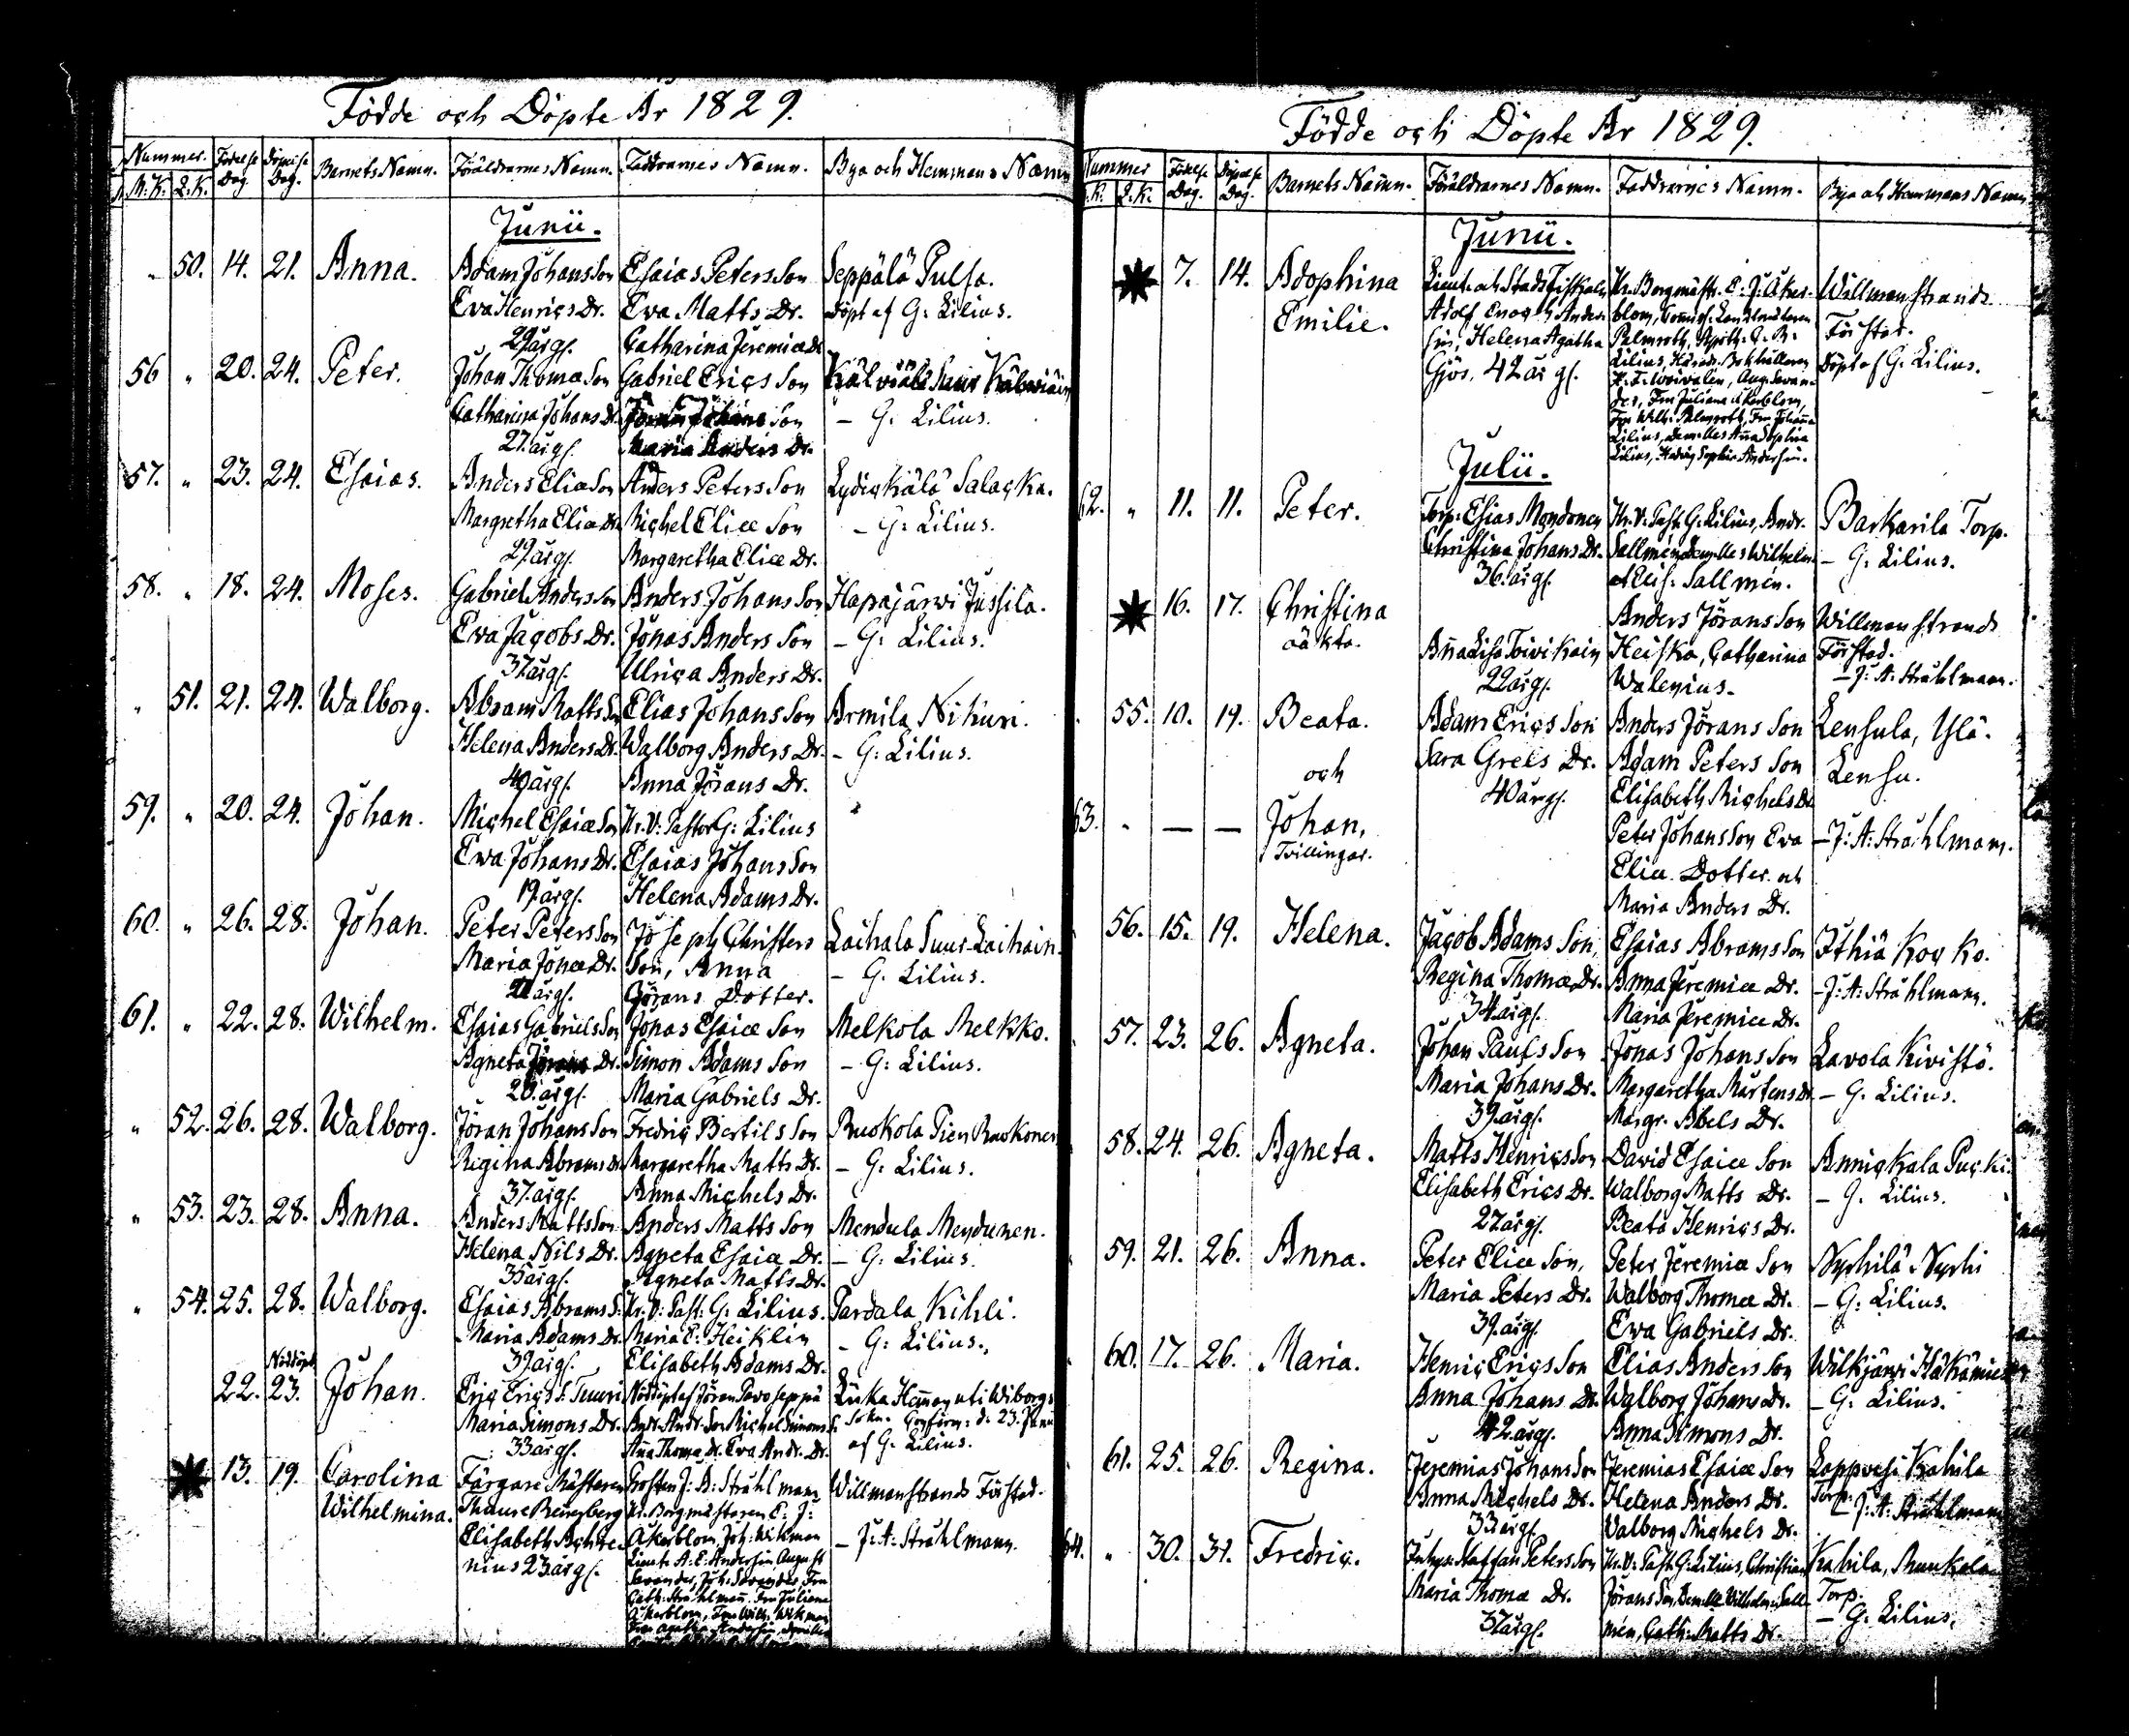 Födde och Döpte År 1829.
Nummer. Födelse Dag. Döpelse Dag. Barnets Namn. Föräldrarnes Namn. Faddrarnes Namn. Bya och Hemmans Namn
M.K. Q.K.
Junii.
50. 14. 21. Anna. Adam Johans Son Esaias Peters Son Seppälä Pulsa.
Eva Henrics Dr. Eva Matts Dr. Döpt af G: Lilius.
29 årg. Catharina Jeremiæ Dr
56 " 20. 24. Peter. Johan Thomæ Son Gabriel Erics Son
Catharina Johans Dr. Johans Son – G: Lilius.
27. årg. Maria Anders Dr.
57. " 23. 24. Esaias. Anders Eliæ Son Anders Peters Son Lydickälä Salacka.
Margretha Eliæ Dr. Michel Eliæ Son – G: Lilius.
29 årg. Margaretha Eliæ Dr.
58. " 18. 24. Moses. Gabriel Anders Son Anders Johans Son Hapajärwi Jussila.
Eva Jacobs Dr. Jonas Anders Son – G: Lilius.
37 årg. Ulrica Anders Dr.
" 51. 21. 24. Walborg. Abram Matts Son Elias Johans Son Armila Nikuri.
Helena Anders Dr. Walborg Anders Dr. – G: Lilius.
40 årg. Anna Jörans Dr.
59. " 20. 24. Johan. Michel Esaiæ Son Hr. V: Pastor G: Lilius "
Ewa Johans Dr. Esaias Johans Son
19 årg. Helena Adams Dr.
60. " 26. 28. Johan. Peter Peters Son Joseph Christers Laihala Suur-Laihain.
Maria Jonæ Dr. Son, Anna – G. Lilius.
21 årg. Görans Dotter.
61. " 22. 28. Wilhelm. Esaias Gabriels Son Jonas Esaiæ Son Melkola Melkko.
Agneta Jörans Dr. Simon Adams Son – G: Lilius.
20. årg. Maria Gabriels Dr.
" 52. 26. 28. Walborg. Jöran Johans Son Fredric Bertils Son Ruokola Pien Ruokonen
Regina Abrams Dr. Margaretha Matts Dr. – G: Lilius.
37. årg. Anna Michels Dr.
" 53. 23. 28. Anna. Anders Matts Son Anders Matts Son Mendula Mendunen.
Helena Nils Dr. Agneta Esaiæ Dr. – G: Lilius.
35 årg. Agneta Matts Dr.
" 54. 25. 28. Walborg. Esaias Abrams S: Hr. V: Past: G: Lilius. Pardala Kihli.
Maria Adams Dr. Maria E: Heiklin – G: Lilius.
39. årg. Elisabeth Adams Dr.
Nöddöpt
22. 23. Johan. Eric Erics S: Tuuri Nöddöpt af Jöran Pavoseppä
Maria Simons Dr. Andr. Andr. Son Michel Simons S. Sokn. Confirm: d: 23. Junii
33 årg. Aña Thomæ Dr. Eva Andr. Dr. af G. Lilius.
13. 19. Carolina Färgare Mästaren Prosten J: A: Stråhlmann Willmanstrands Förstad.
Wilhelmina. Hr. Borgmästaren E: J:
Elisabeth Åkerblom, Joh: Wikman – J: A: Stråhlmann.
nius 23 årg. Lieut: A: E: Andersin August
Savander, Joh: Savander, Fru
Cath: Stråhlmañ, Fru Juliana
Åkerblom, Fru Wilh: Wikman
Födde och Döpte År 1829.
Nummer Födelse Dag. Döpelse Dag. Barnets Namn. Föräldrarnes Namn. Faddrarnes Namn. Bya och Hemmans Namn
K. Q.K.
Junii.
7. 14. Adophina Lieut. och Stads Fiskalen Hr. Borgmästr. E: J: Åker- Willmanstrands
Emilie. Adolf Enoch Ander- blom, Landtmätaren Förstad.
sin, Helena Agatha Palmroth, Apoth: C. R: Döpt af G: Lilius.
Gjös, 42 årg. Lilius, Härads Bokhållaren
Aug: Savan-
der, Fru Juliana Åkerblom,
Fru Wilh: Palmroth, Fru Johaña
Lilius, Dem:lles Aña Sophia
Lilius, Hedvig Sophia Andersin.
Julii.
62. " 11. 11. Peter. Torp: Esias Mondonen Hr. V: Past: G: Lilius, Andr. Barkarila Torp.
Christina Johans Dr. Sallmén Wilhelm: – G: Lilius.
36. årg. Sallmén.
16. 17. Christina Anders Jörans Son Willmanstrands
oäkta. Aña Lisa Toivikain Heiska, Catharina Förstad.
22 årg. Walenius. – J: A: Stråhlmann.
55. 10. 19. Beata. Adam Erics Son Anders Jörans Son Lensula, Ylä-
och Sara Grels Dr. Adam Peters Son Lensu.
40 årg. Elisabeth Michels Dr
63. " — — Johan, Peter Johans Son Eva – J: A: Stråhlmann.
Tvillingar. Eliæ Dotter och
Maria Anders Dr.
56. 15. 19. Helena. Jacob Adams Son, Esaias Abrams Son Ithiä Kocko.
Regina Thomæ Dr. Anna Jeremiæ Dr. – J: A: Stråhlmann.
34 årg. Maria Jeremiæ Dr.
57. 23. 26. Agneta. Johan Pauls Son Jonas Johans Son Lavola Kivistö.
Maria Johans Dr. Margaretha Mårtens Dr – G. Lilius.
39. årg. Margr. Abels Dr.
58. 24. 26. Agneta. Matts Henrics Son David Esaiæ Son Annickala Pucki.
Elisabeth Erics Dr. Walborg Matts Dr. – G. Lilius.
27. årg. Beata Henrics Dr.
59. 21. 26. Anna. Peter Eliæ Son, Peter Jeremiæ Son Nyrhilä Nyrhi
Maria Peters Dr. Walborg Thomæ Dr. – G: Lilius.
39. årg. Ewa Gabriels Dr.
60. 17. 26. Maria. Henric Erics Son Elias Anders Son Wilkjärvi
Anna Johans Dr. Walborg Johans Dr. – G: Lilius.
42 årg. Anna Simons Dr.
61. 25. 26. Regina. Jeremias Johans Son Jeremias Esaiæ Son Lappvesi Kahila
Anna Michels Dr. Helena Anders Dr. Torp. – J: A: Stråhlmann
33 årg. Valborg Michels Dr.
64. " 30. 31. Fredric. Staffan Peters Son Hr. V: Past: G: Lilius, Christian Kahila, Munkala
Maria Thomæ Dr. Jörans Son, Wilhelm: Sall- Torp.
37 årg. mén, Cath: Matts Dr. – G: Lilius.